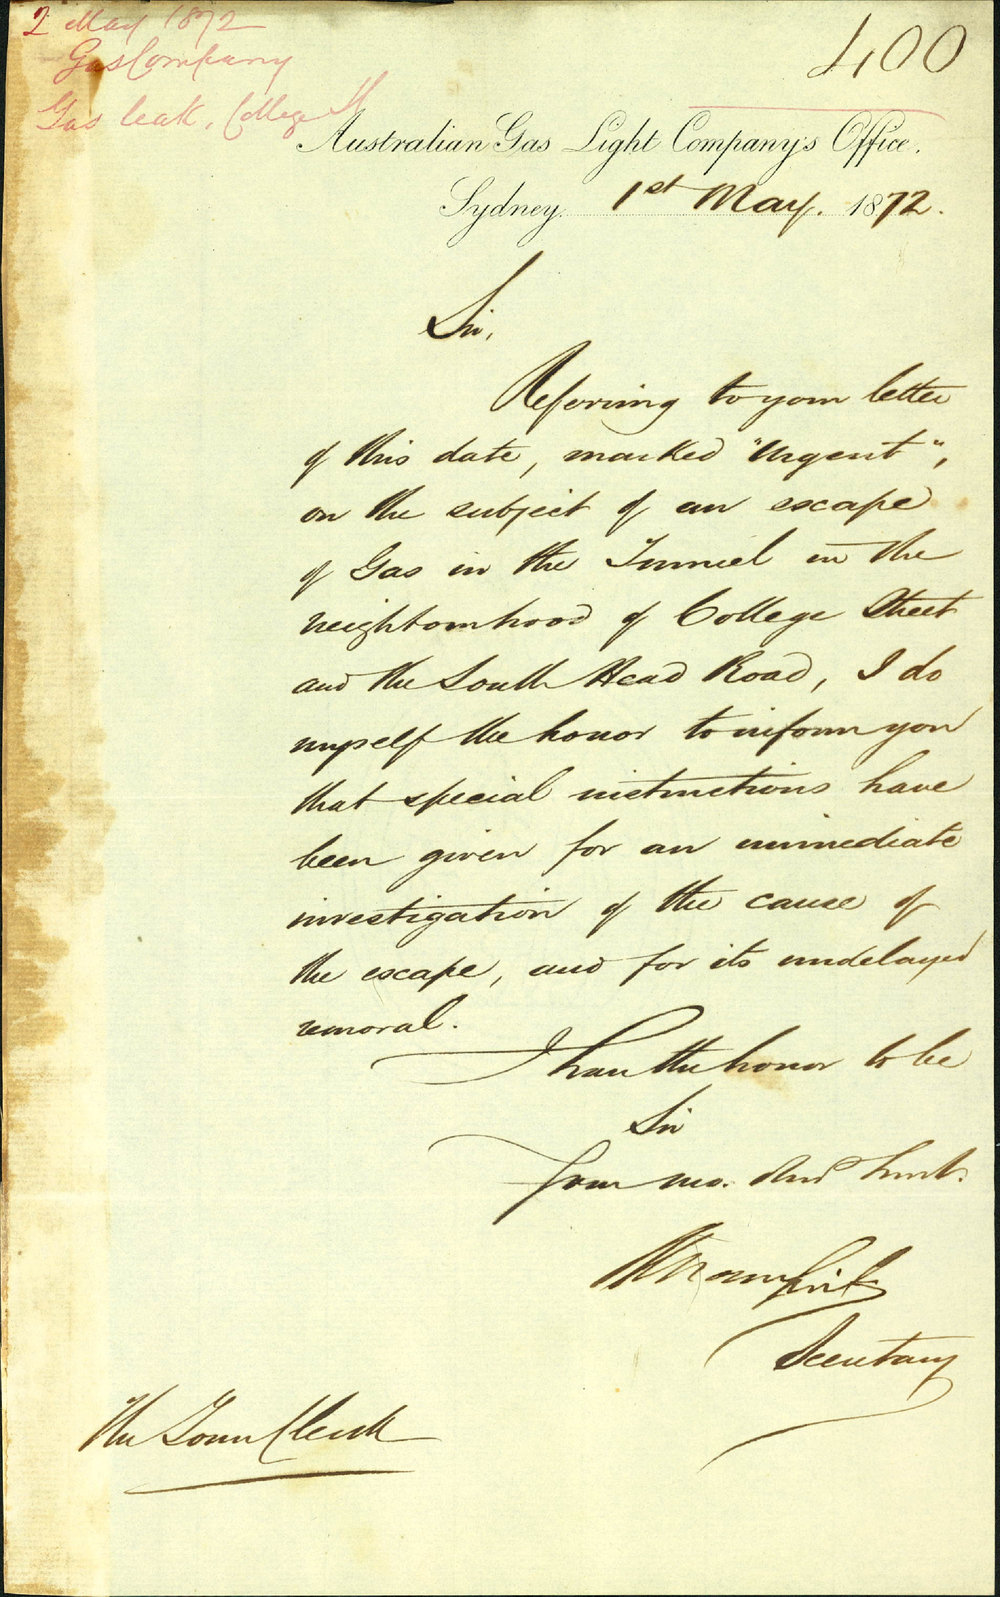 2 May 1872
Gas Company
Gas leak, College St
400
Australian Gas Light Company's Office.
Sydney. 1st May. 1872.
Sir,
Referring to your letter
of this date, marked "Urgent",
on the subject of an escape
of Gas in the Tunnel in the
neighbourhood of College Street
and the South Head Road, I do
myself the honor to inform you
that special instructions have
been given for an immediate
investigation of the cause of
the escape, and for its undelayed
removal.
I have the honor to be
Sir
Your mo. Obed Servt.
Secretary
The Town Clerk